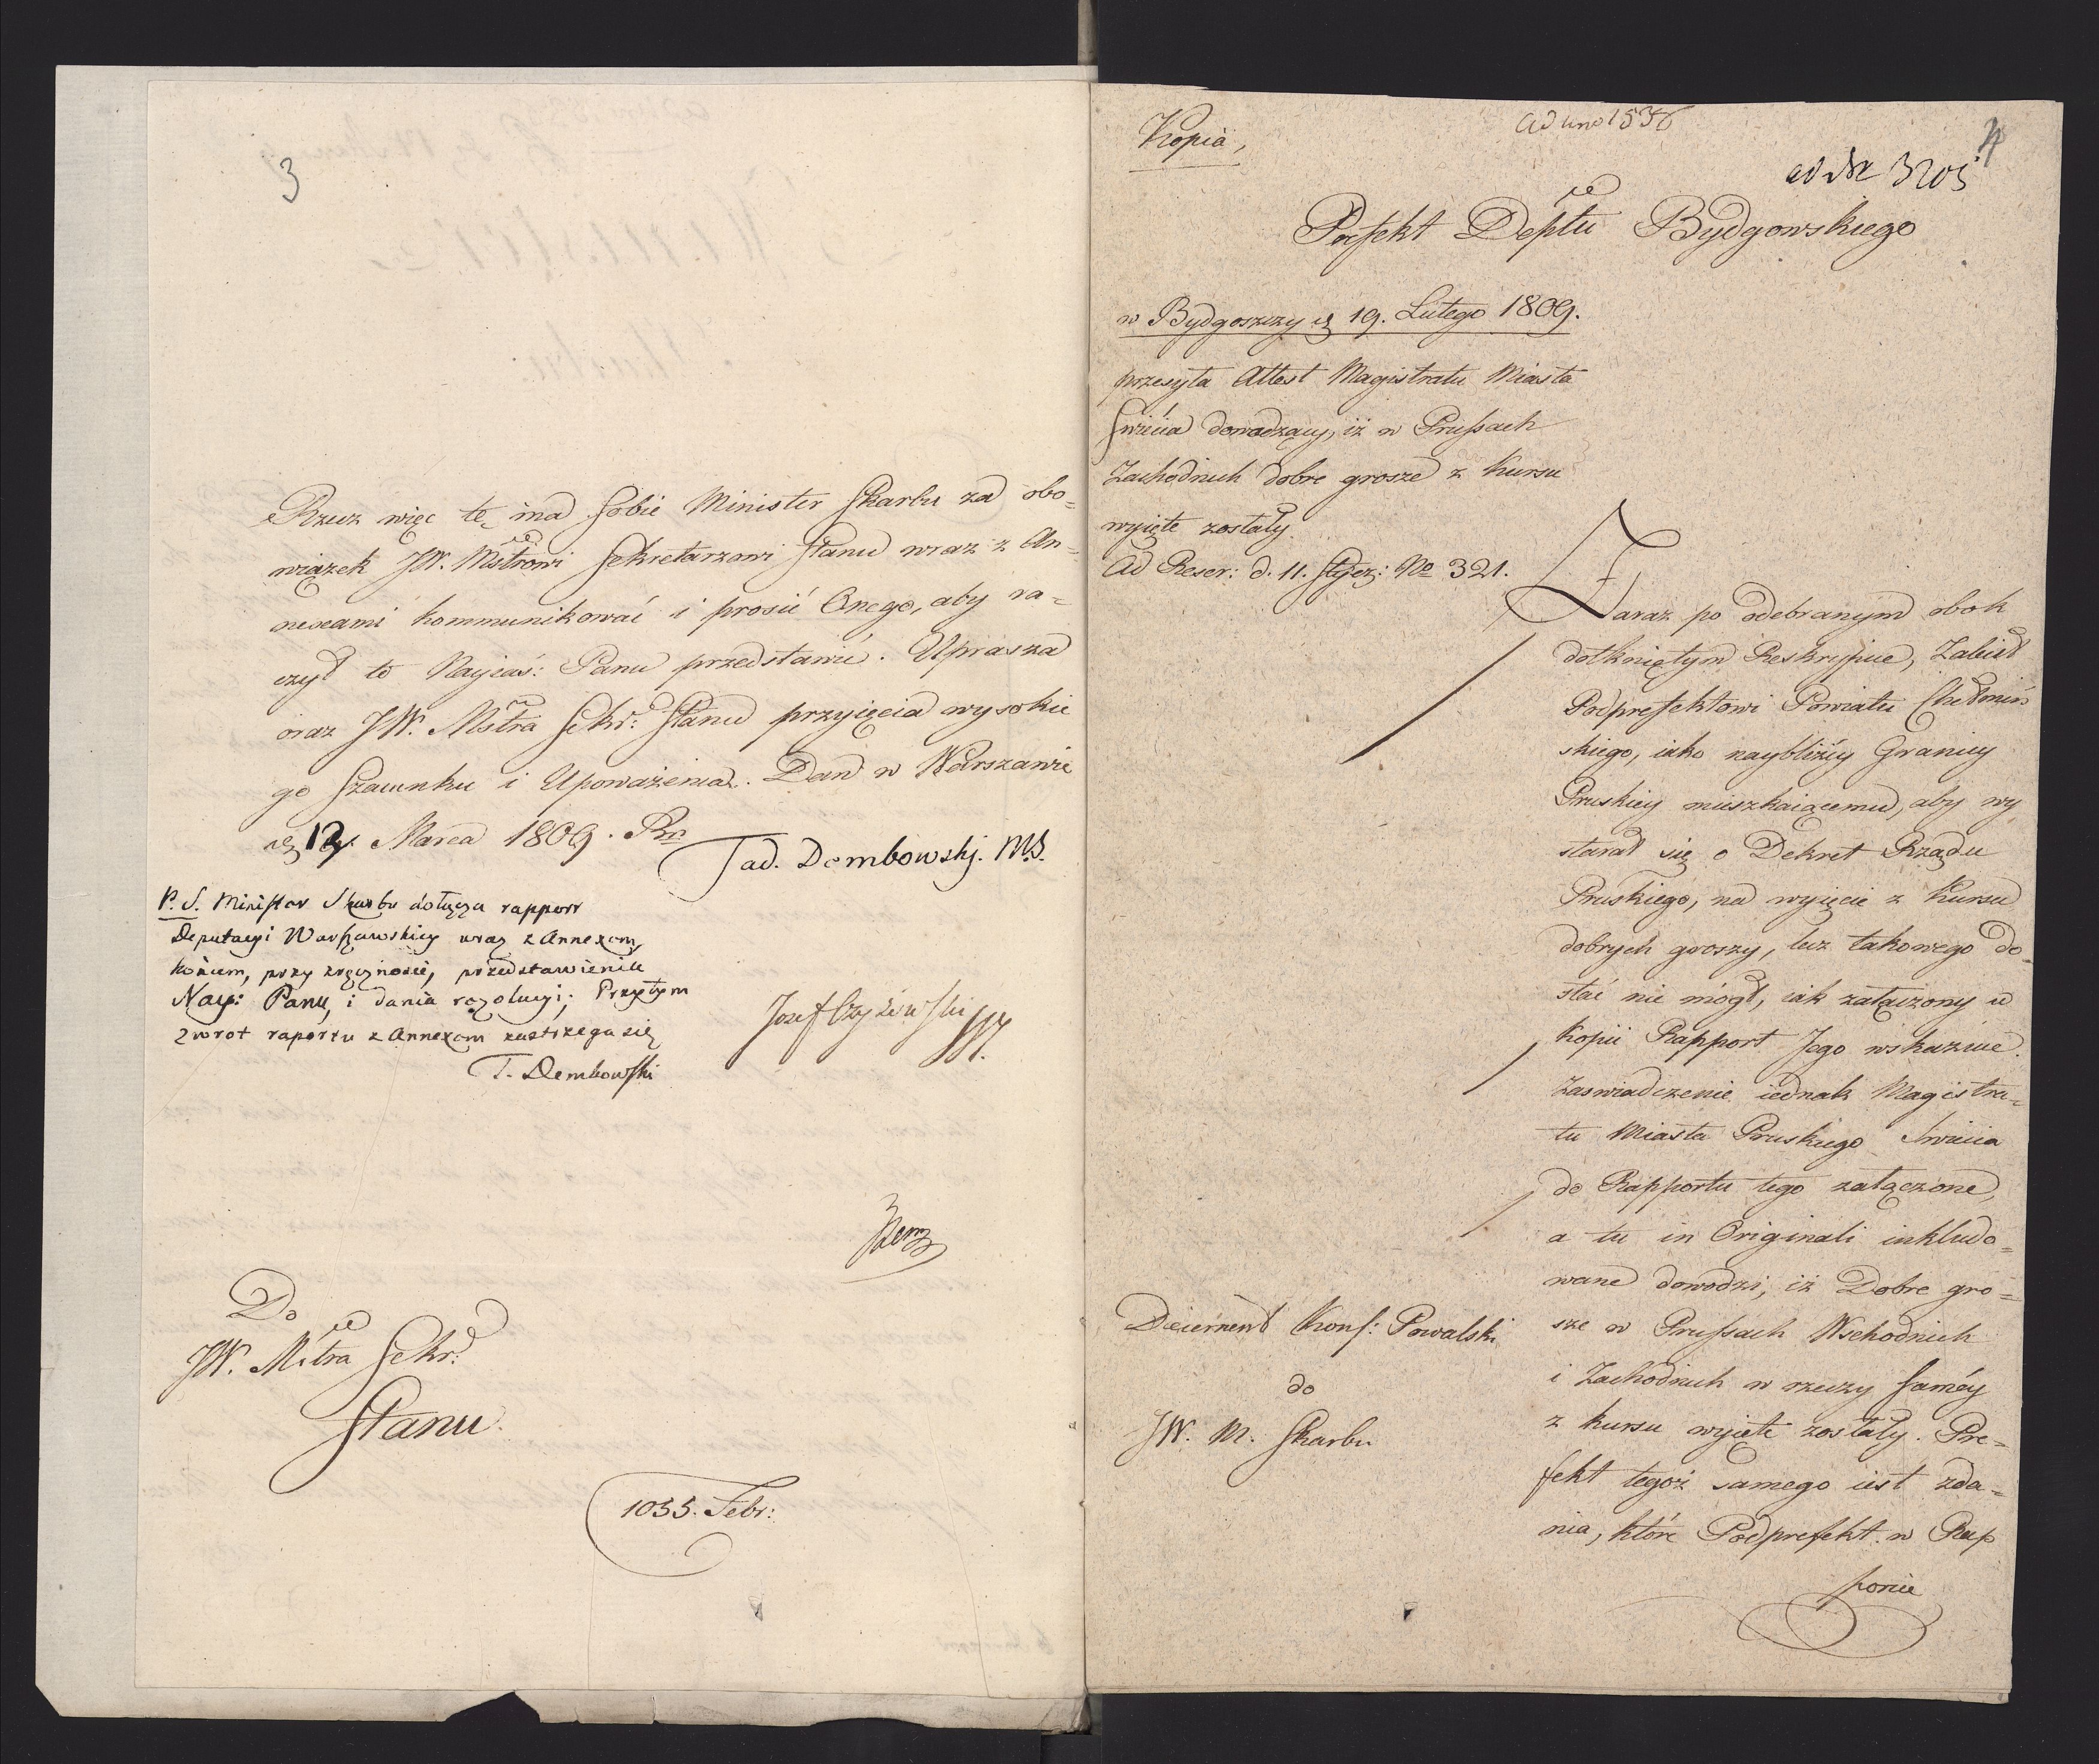 3
Rzecz więc tę ma sobie Minister Skarbu za obo=
wiązek JW. Mstrowi Sekretarzowi Stanu wraz z An=
nexami kommunikować i prosić Onego, aby ra=
czył to Nayiaś: Panu przedstawić. Uprasza
oraz JW. Mstra Sekr: Stanu przyięcia wysokie
go Szacunku i Upoważenia. Dan w Warszawie
d. 12 Marca 1809. Rn
Tad. Dembowski. M.S.
P.S. Minister Skarbu dołącza rapport
Deputacyi Warszawskiey wraz z Annexem,
końcem, przy zręczności, przedstawienia
Nay: Panu, i dania rezolucyi; Przytym
zwrot raportu z Annexem zastrzega się
T. Dembowski
Do
JW. Mstra Sekr:
Stanu.
1055. Febr:
Kopia,
ad um 1536
4
ad Nr 3205
Prefekt Deptu Bydgowskiego
w Bydgoszczy d. 19. Lutego 1809.
przesyła Attest Magistratu Miasta
Swiecia dowodzący, iż w Prussach
Zachodnich dobre grosze z kursu
wyięte zostały.
Ad Rescr: d. 11. Stycz: No 321.
Zaraz po odebranym obok
dotkniętym Reskrypcie, Zalecił
Podprefektowi Powiatu Chełmiń
skiego, iako naybliżéy Granicy
Pruskiey mieszkaiącemu, aby wy
starał się o Dekret Rządu
Pruskiego, na wyięcie z Kursu
dobrych groszy, lecz takowego do=
stać nie mógł, iak załączony w
kopii Rapport Jego wskazuie.
Zaswiadczenie iednak Magistra=
tu Miasta Pruskiego Swiecia
do Rapportu tego załączone,
a tu in Originali inkludo=
wane dowodzi, iż Dobre gro=
sze w Prussach Wschodnich
i Zachodnich w rzeczy saméy
z kursu wyięte zostały. Pre=
fekt tegoż samego iest zda=
nia, które Podprefekt w Rap
porcie
Decernent Kons: Powalski
do
JW. M. Skarbu